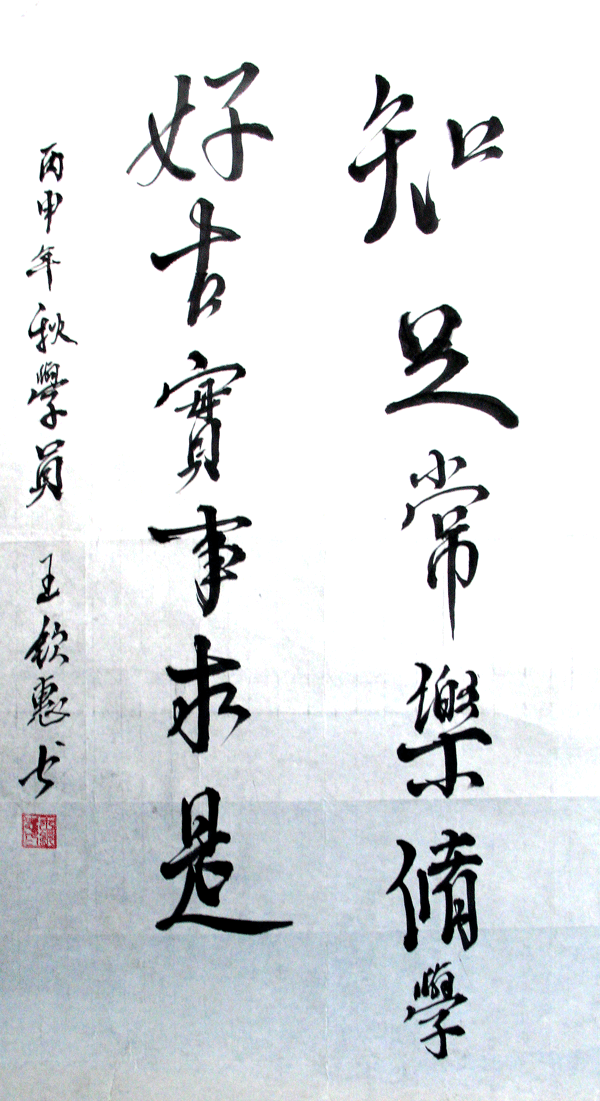 知足常樂脩學
好古實事求是
丙申年秋學員 王欽惠书